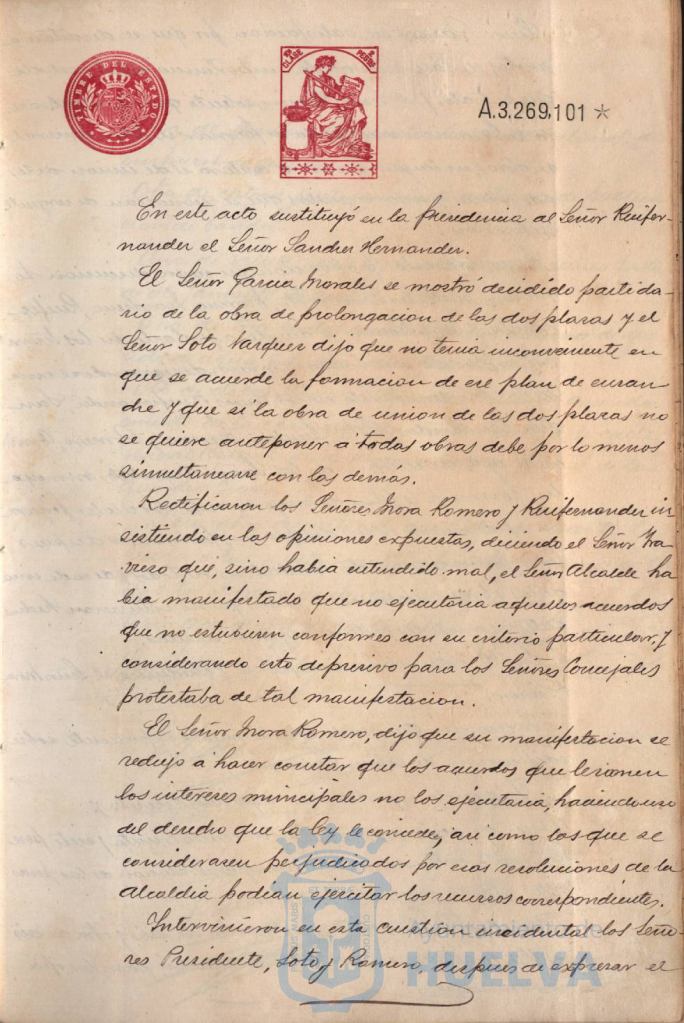 TIMBRE DEL ESTADO
CLASE
A.3.269,101 *
En este acto sustituyó en la Presidencia al Señor Ruifer-
nandez el Señor Sanchez Hernandez.
El Señor Garcia Morales se mostró decidido partida-
rio de la obra de prolongacion de las dos plazas y el
Señor Soto Vazquez dijo que no tenia inconveniente en
que se acuerde la formacion de ese plan de ensan-
che y que si la obra de union de las dos plazas no
se quiere anteponer á todas obras debe por lo menos
simultanearse con las demás.
Rectificaron los Señores Mora Romero y Ruifernandez in
sistiendo en las opiniones expuestas, diciendo el Señor Tra
vieso que, sino habia entendido mal, el Señor Alcalde ha
bia manifestado que no ejecutaria aquellos acuerdos
que no estuviesen conformes con su criterio particular y
considerando esto depresivo para los Señores Concejales
protestaba de tal manifestacion.
El Señor Mora Romero, dijo que su manifestacion se
redujo á hacer constar que los acuerdos que lesionen
los intereses municipales no los ejecutaria, haciendo uso
del derecho que la ley le concede, asi como los que se
considerasen perjudicados por esas resoluciones de la
Alcaldia podian ejercitar los recursos correspondientes.
Intervinieron en esta cuestion incidental los Seño-
res Presidente, Soto y Romero, despues de expresar el
Ayuntamiento de
HUELVA